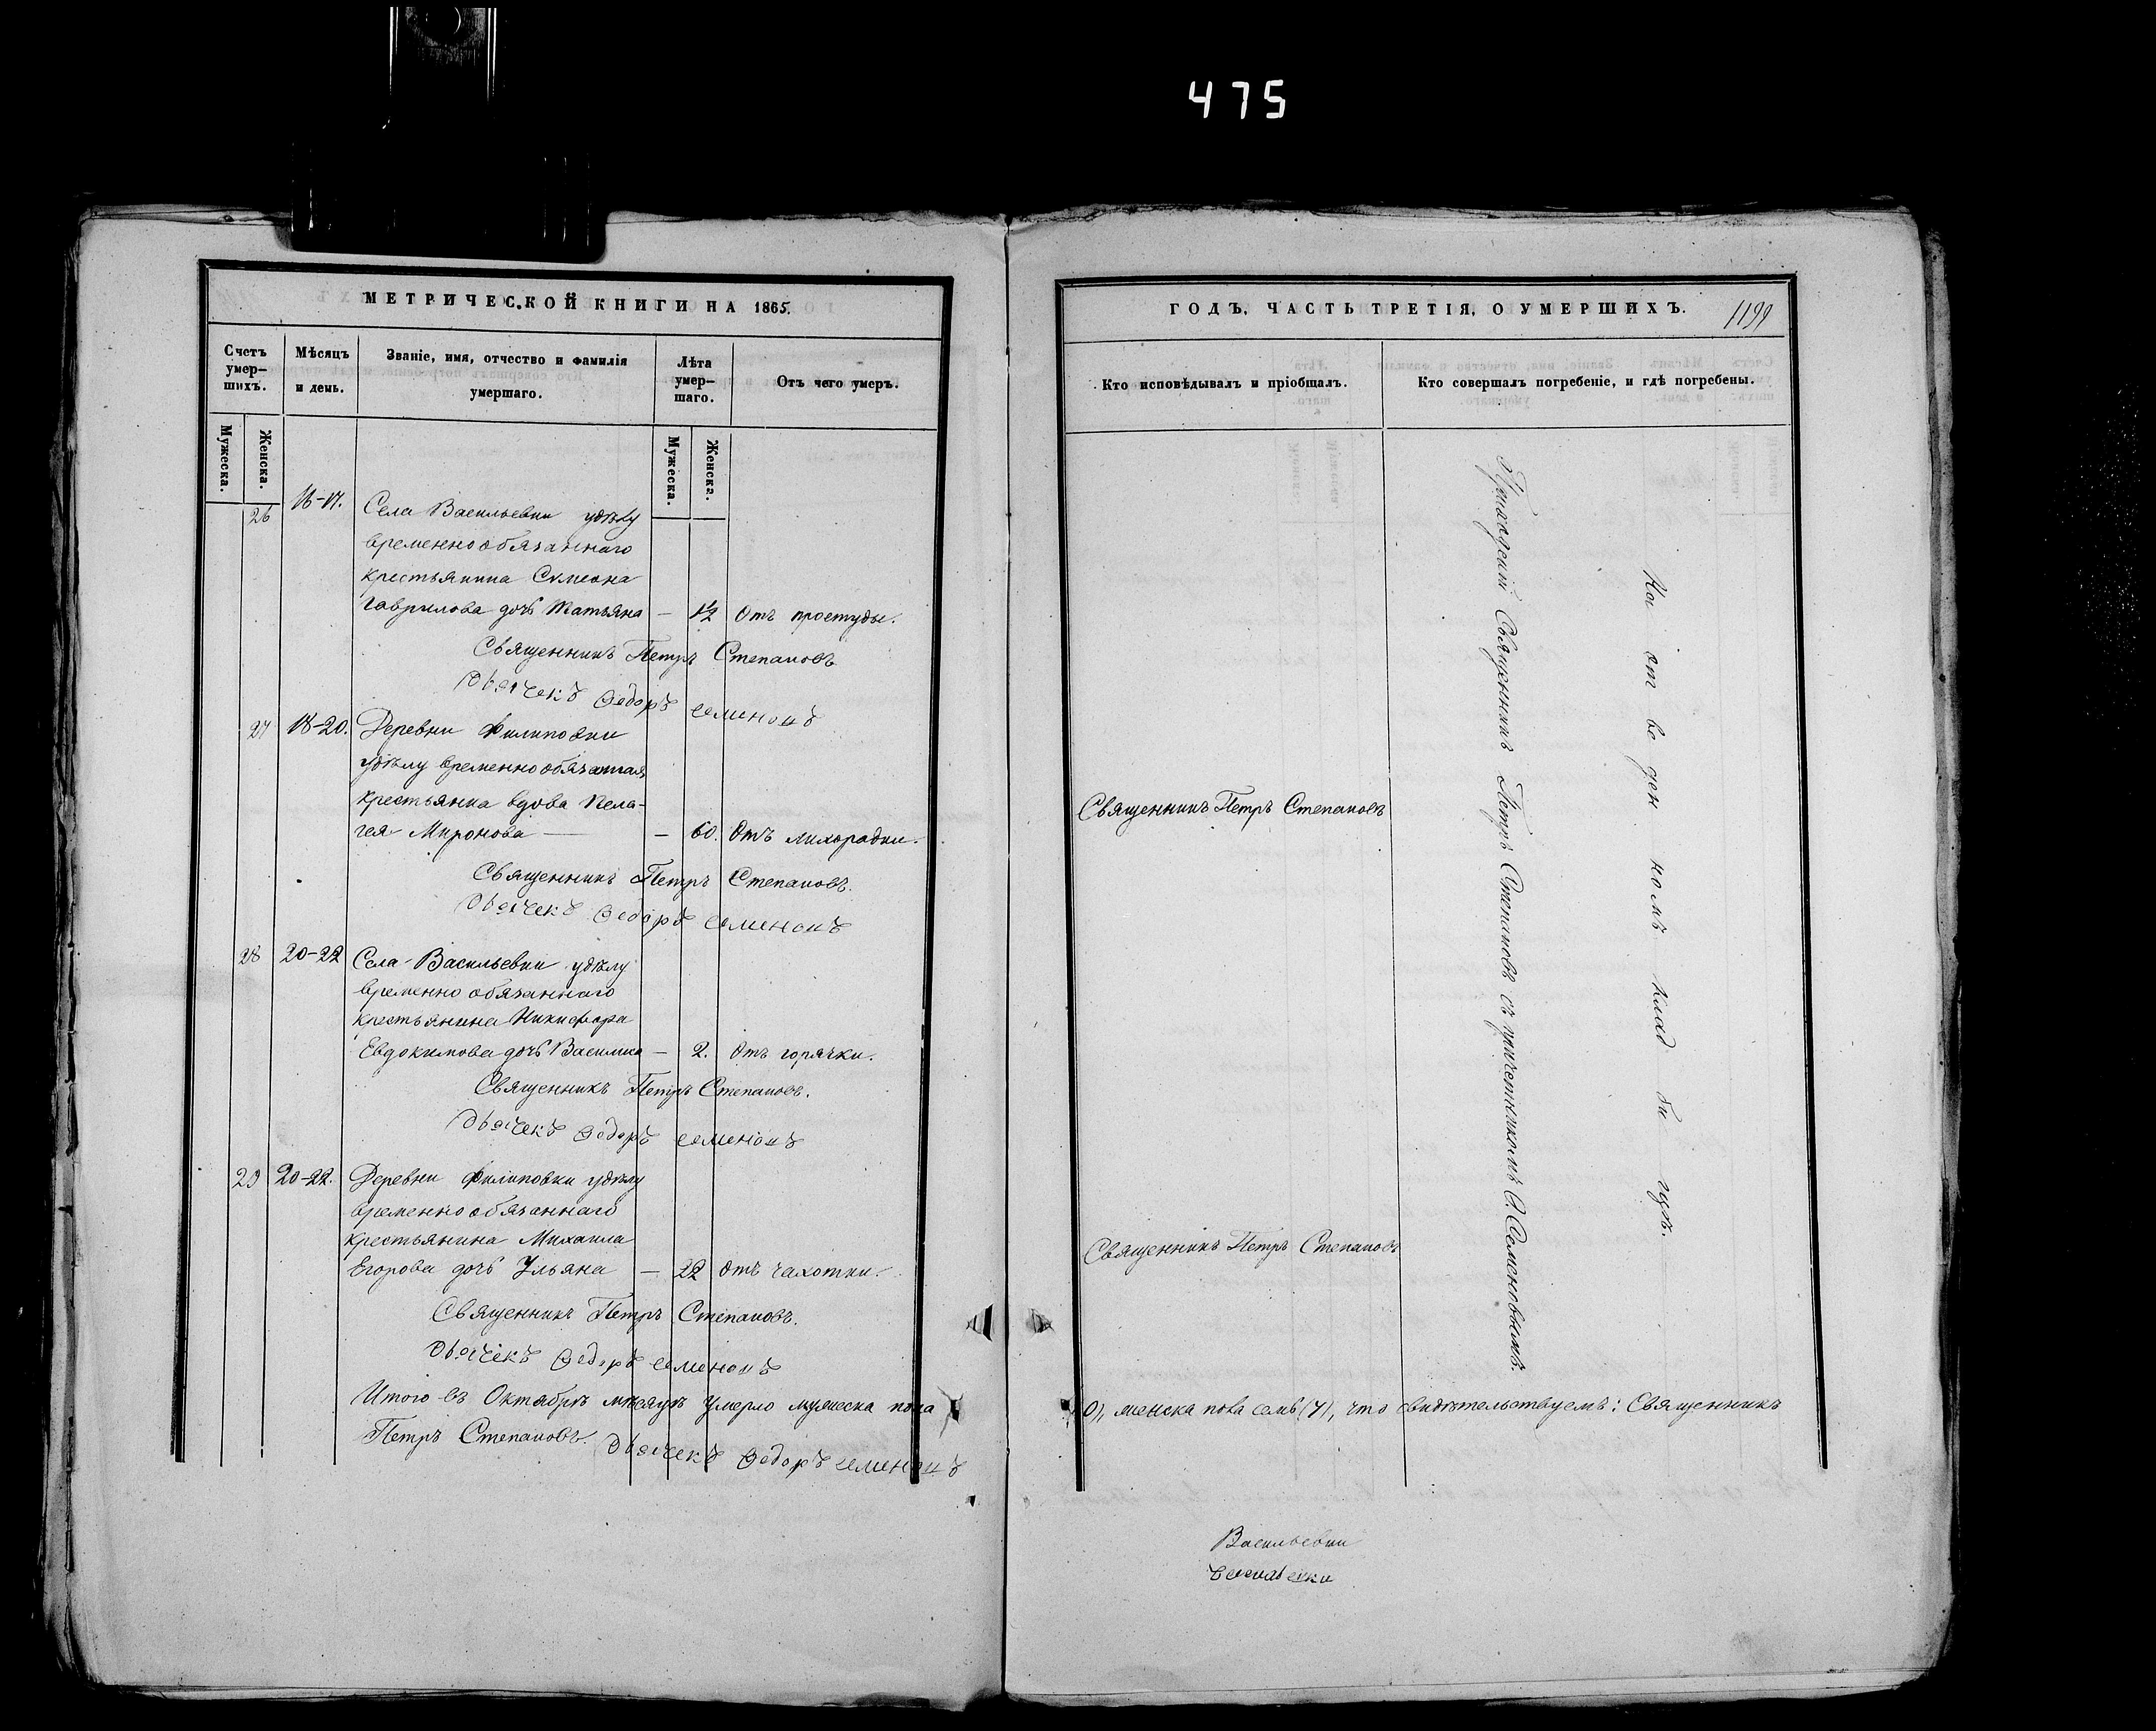 475
МЕТРИЧЕСКОЙ КНИГИ НА 1865.
Счетъ умер-шихъ.
Мужеска.
Женска.
Мѣсяцъ и день.
Званіе, имя, отчество и фамилія умершаго.
Лѣта умер-шаго.
Мужеска.
Женска.
Отъ чего умеръ.
26 16-17. Села Васильевки удѣлу
временнообязаннаго
крестьянина Симеона
Гаврилова дочь Татьяна — 1/2 Отъ простуды.
Священникъ Петръ Степановъ
Дьячекъ Ѳедоръ Семеновъ
27 18-20. Деревни Филиповки
удѣлу временнообязанная
крестьянка вдова Пела-
гея Миронова — — 60. Отъ лихорадки.
Священникъ Петръ Степановъ.
Дьячекъ Ѳедоръ Семеновъ
28 20-22 Села Васильевки удѣлу
временно обязаннаго
крестьянина Никифора
Евдокимова дочь Василиса — 2. Отъ горячки.
Священникъ Петръ Степановъ.
Дьячекъ Ѳедоръ Семеновъ
29 20-22. Деревни Филиповки удѣлу
временно обязаннаго
крестьянина Михаила
Егорова дочь Ульяна — 22 Отъ чахотки.
Священникъ Петръ Степановъ.
Дьячекъ Ѳедоръ Семеновъ
Итого въ Октябрѣ мѣсяцѣ умерло мужеска пола
Петръ Степановъ. Дьячекъ Ѳедоръ Семеновъ
ГОДЪ, ЧАСТЬ ТРЕТІЯ, О УМЕРШИХЪ.
1199
Кто исповѣдывалъ и пріобщалъ.
Кто совершалъ погребеніе, и гдѣ погребены.
Священникъ Петръ Степановъ
Священникъ Петръ Степановъ
Приходскій Священникъ Петръ Степановъ съ причетникомъ Ѳ. Семеновымъ.
На от ве ден номъ клад би щѣ.
(0), женска пола семь (7), что свидѣтельствуемъ: Священникъ
Васильевки